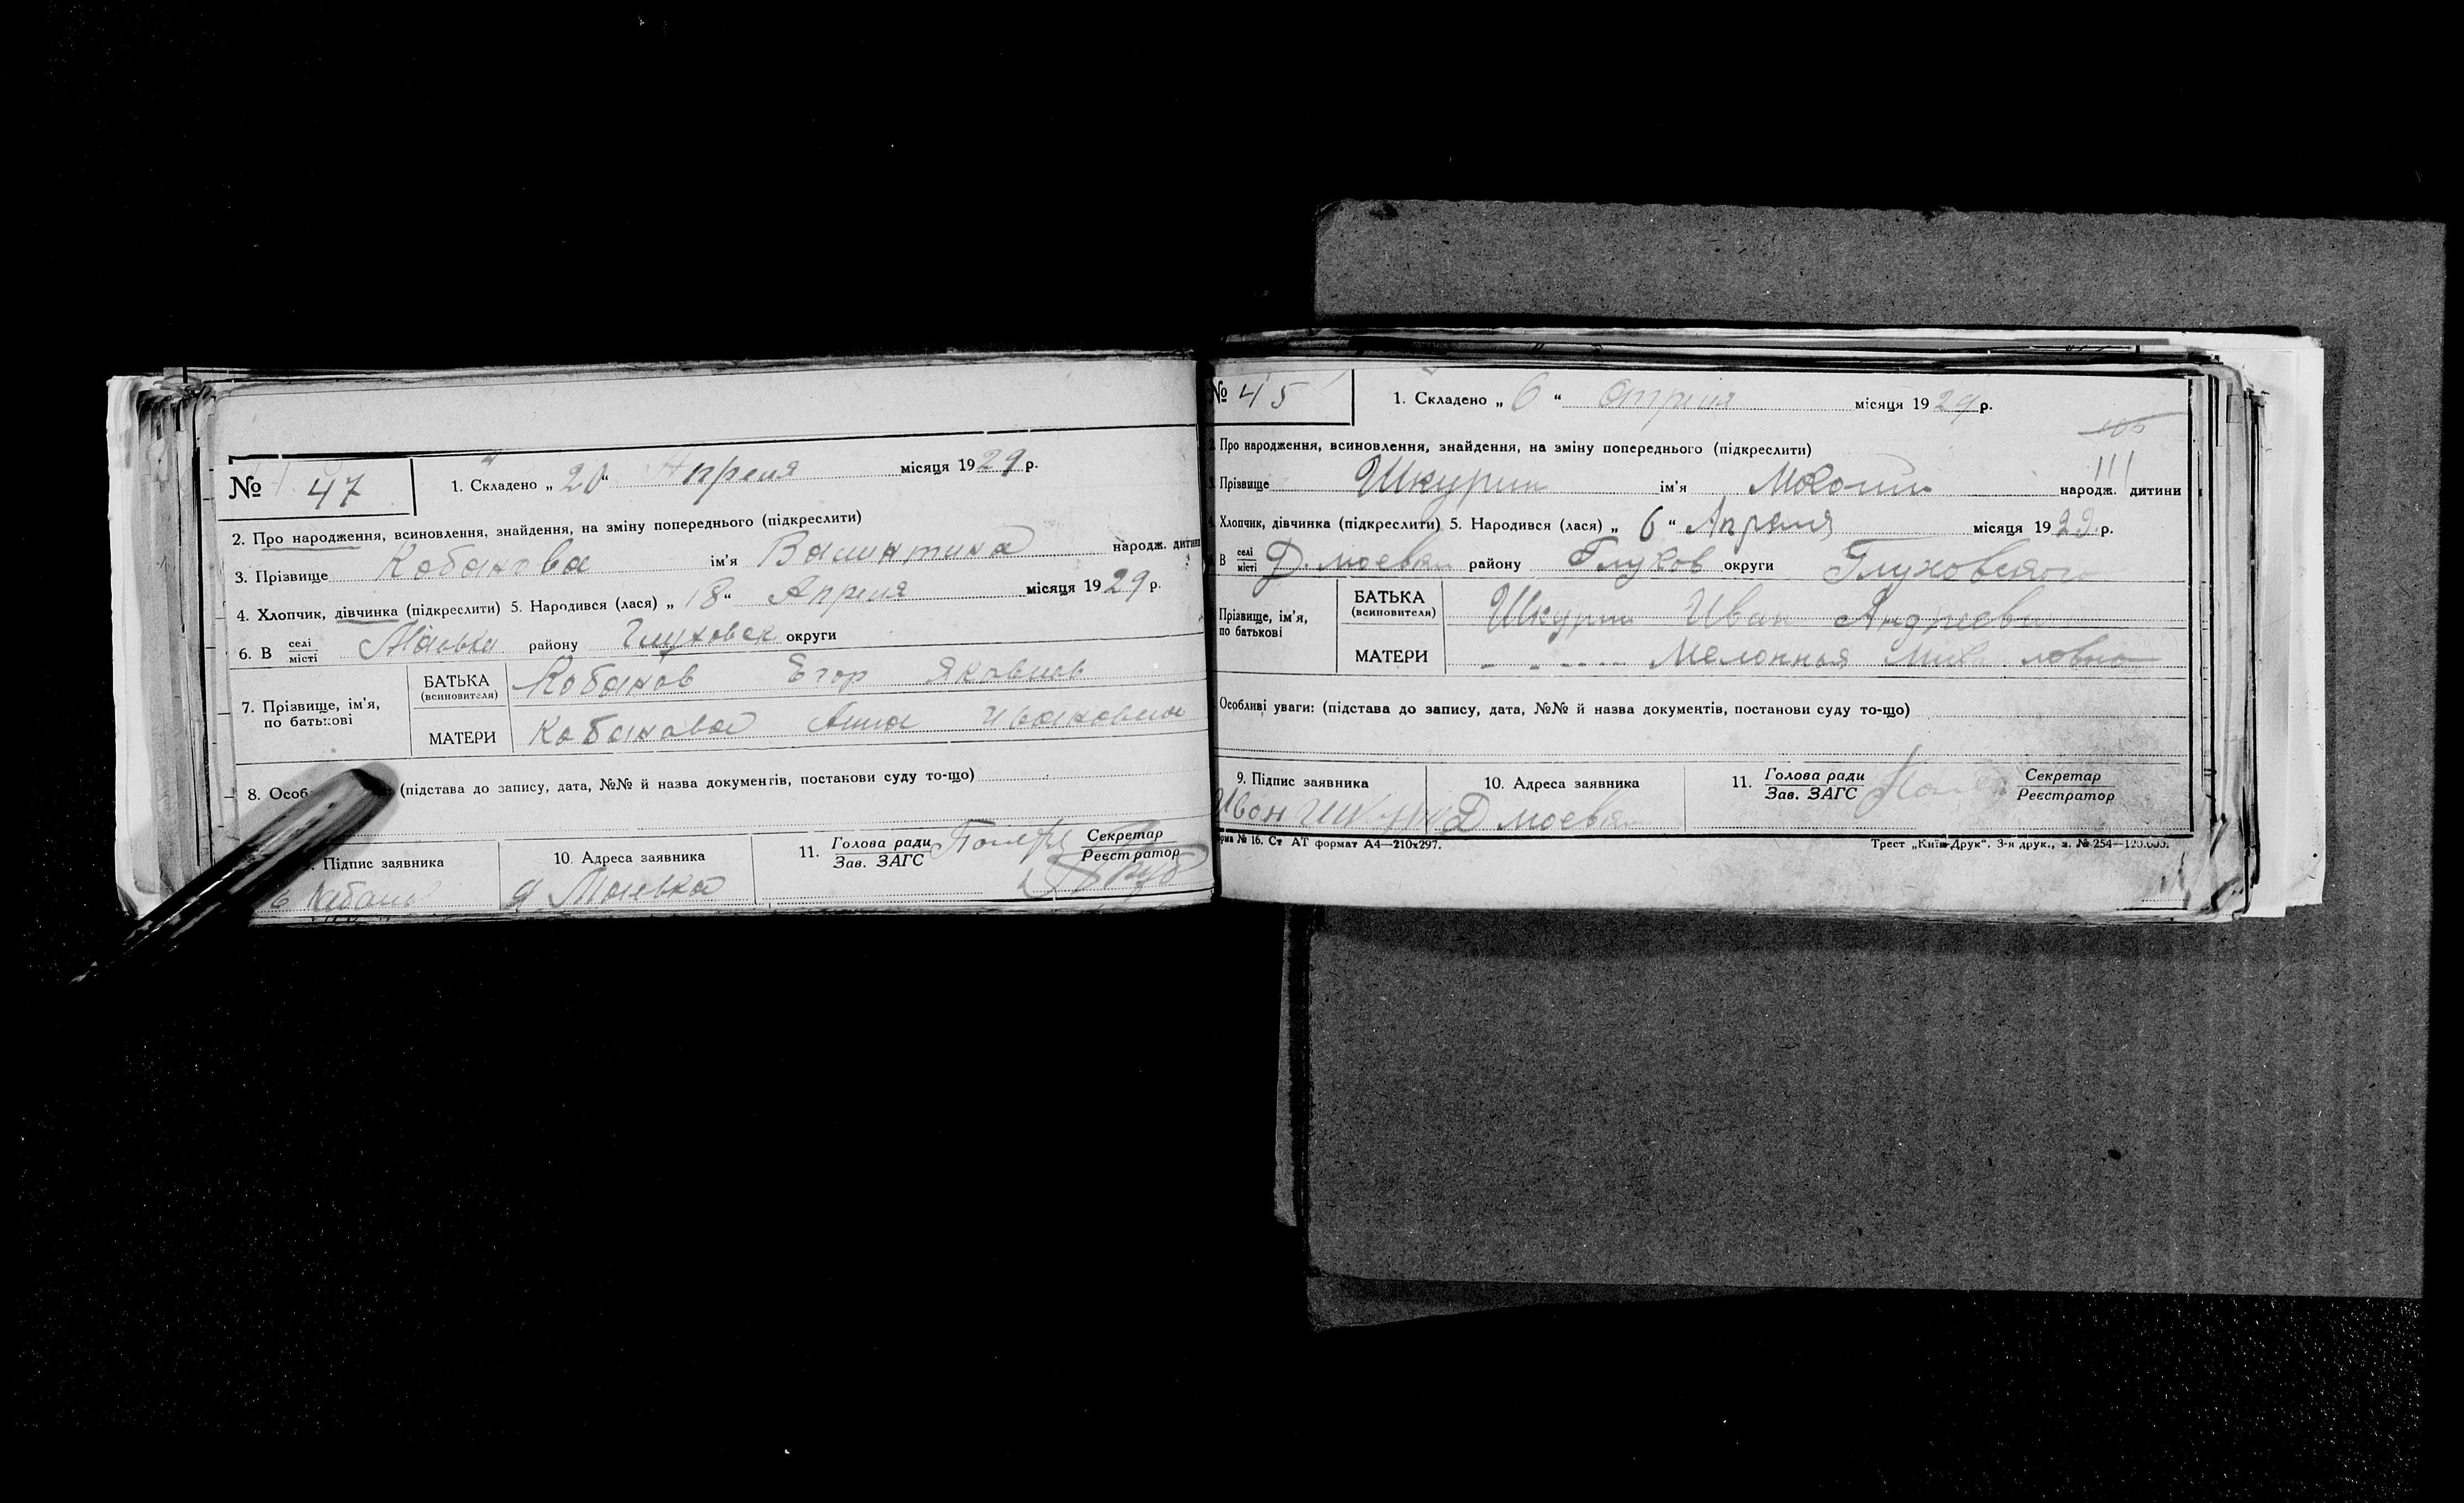 № 47
1. Складено „ 20 “ Апреля місяця 1929 р.
2. Про народження, всиновлення, знайдення, на зміну попереднього (підкреслити)
3. Прізвище Кобанова ім'я Валинтина народж. дитини
4. Хлопчик, дівчинка (підкреслити) 5. Народився (лася) „ 18 “ Апреля місяця 1929 р.
6. В селі місті Маевка району Глуховск округи
7. Прізвище, ім'я, по батькові
БАТЬКА (всиновителя) Кобанов Егор Яковлев
МАТЕРИ Кобанова Анна Ивановна
8. Особ (підстава до запису, дата, №№ й назва документів, постанови суду то-що)
Підпис заявника
10. Адреса заявника
Маевка
11. Голова ради Зав. ЗАГС
Секретар Реєстратор
№ 45
1. Складено „ 6 “ Апреля місяця 1929 р.
105
Про народження, всиновлення, знайдення, на зміну попереднього (підкреслити)
111
Прізвище Шкурин ім'я народж. дитини
Хлопчик, дівчинка (підкреслити) 5. Народився (лася) „ 6 “ Апреля місяця 1929 р.
В селі місті Д. району Глухов округи Глуховского
Прізвище, ім'я, по батькові
БАТЬКА (всиновителя) Шкурин Иван Андреевич
МАТЕРИ
Особливі уваги: (підстава до запису, дата, №№ й назва документів, постанови суду то-що)
9. Підпис заявника
Ивон
10. Адреса заявника
Д
11. Голова ради Зав. ЗАГС
Секретар Реєстратор
№ 16. Ст АТ формат А4—210х297.
Трест „Київ-Друк“. 3-я друк., з. № 254—120.000.